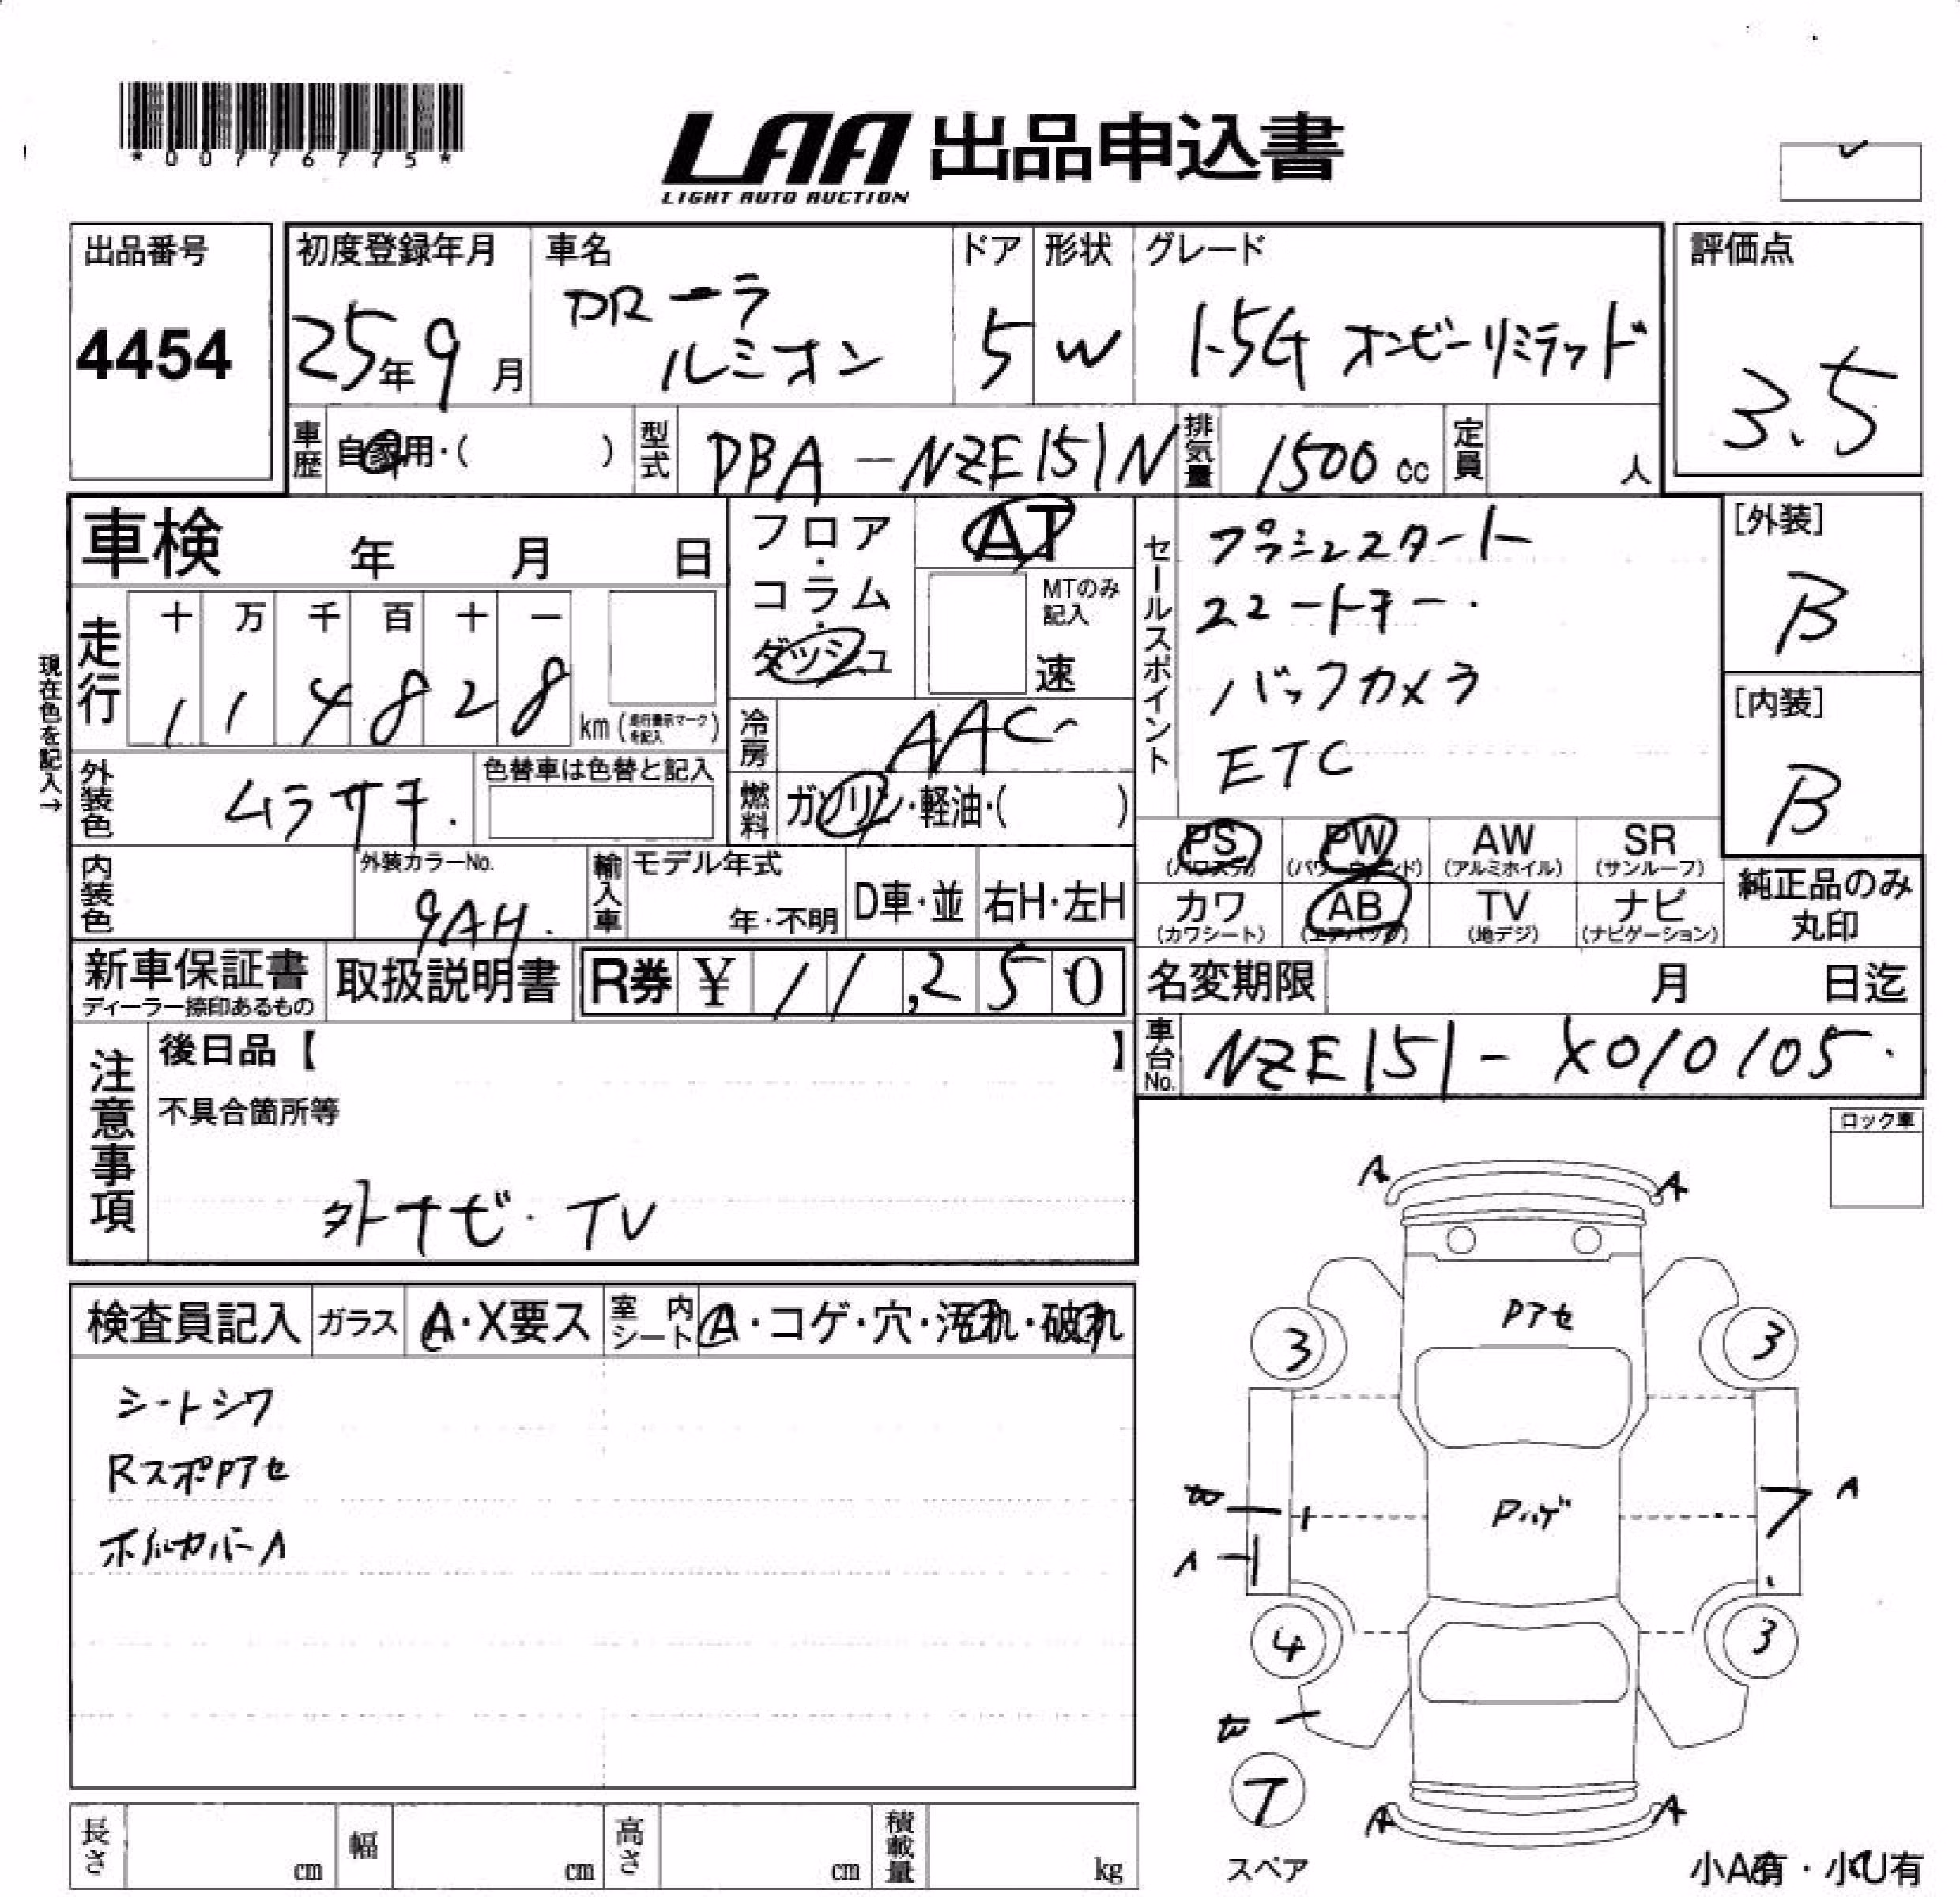 *00776775*
LAA 出品申込書
LIGHT AUTO AUCTION
出品番号
4454
初度登録年月
25年9月
車名
カローラ
ルミオン
ドア
5
形状
W
グレード
1.5G オンビーリミテッド
評価点
3.5
車歴
自家用・( )
型式
DBA-NZE151N
排気量
1500 cc
定員
人
車検 年 月 日
走行
十 万 千 百 十 一
1 1 4 8 2 8
km (走行表示マークを記入)
現在色を記入→
フロア・コラム・ダッシュ
AT
MTのみ記入
速
冷房
AAC
燃料
ガソリン・軽油・( )
セールスポイント
プッシュスタート
スマートキー.
バックカメラ
ETC
[外装]
B
[内装]
B
外装色
ムラサキ.
色替車は色替と記入
内装色
外装カラーNo.
9AH.
輸入車
モデル年式
年・不明
D車・並
右H・左H
PS
(パワステ)
PW
(パワーウィンド)
AW
(アルミホイル)
SR
(サンルーフ)
カワ
(カワシート)
AB
(エアバッグ)
TV
(地デジ)
ナビ
(ナビゲーション)
純正品のみ
丸印
新車保証書
ディーラー捺印あるもの
取扱説明書
R券 ¥ 11,250
名変期限 月 日迄
車台No.
NZE151-X010105.
注意事項
後日品【 】
不具合箇所等
外ナビ・TV
ロック車
検査員記入
ガラス
A・X要ス
室内シート
A・コゲ・穴・汚れ・破れ
シートシワ
RスポPアセ
ホイルカバーA
A A
Pアセ
3 3
W A
Pハゲ
A
4 3
W
T
スペア
A A
小A有・小U有
長さ cm
幅 cm
高さ cm
積載量 kg